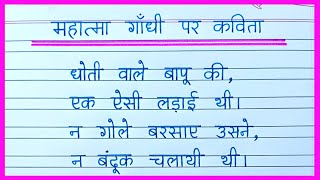 महात्मा गाँधी पर कविता
धोती वाले बापू की,
एक ऐसी लड़ाई थी।
न गोले बरसाए उसने,
न बंदूक चलायी थी।